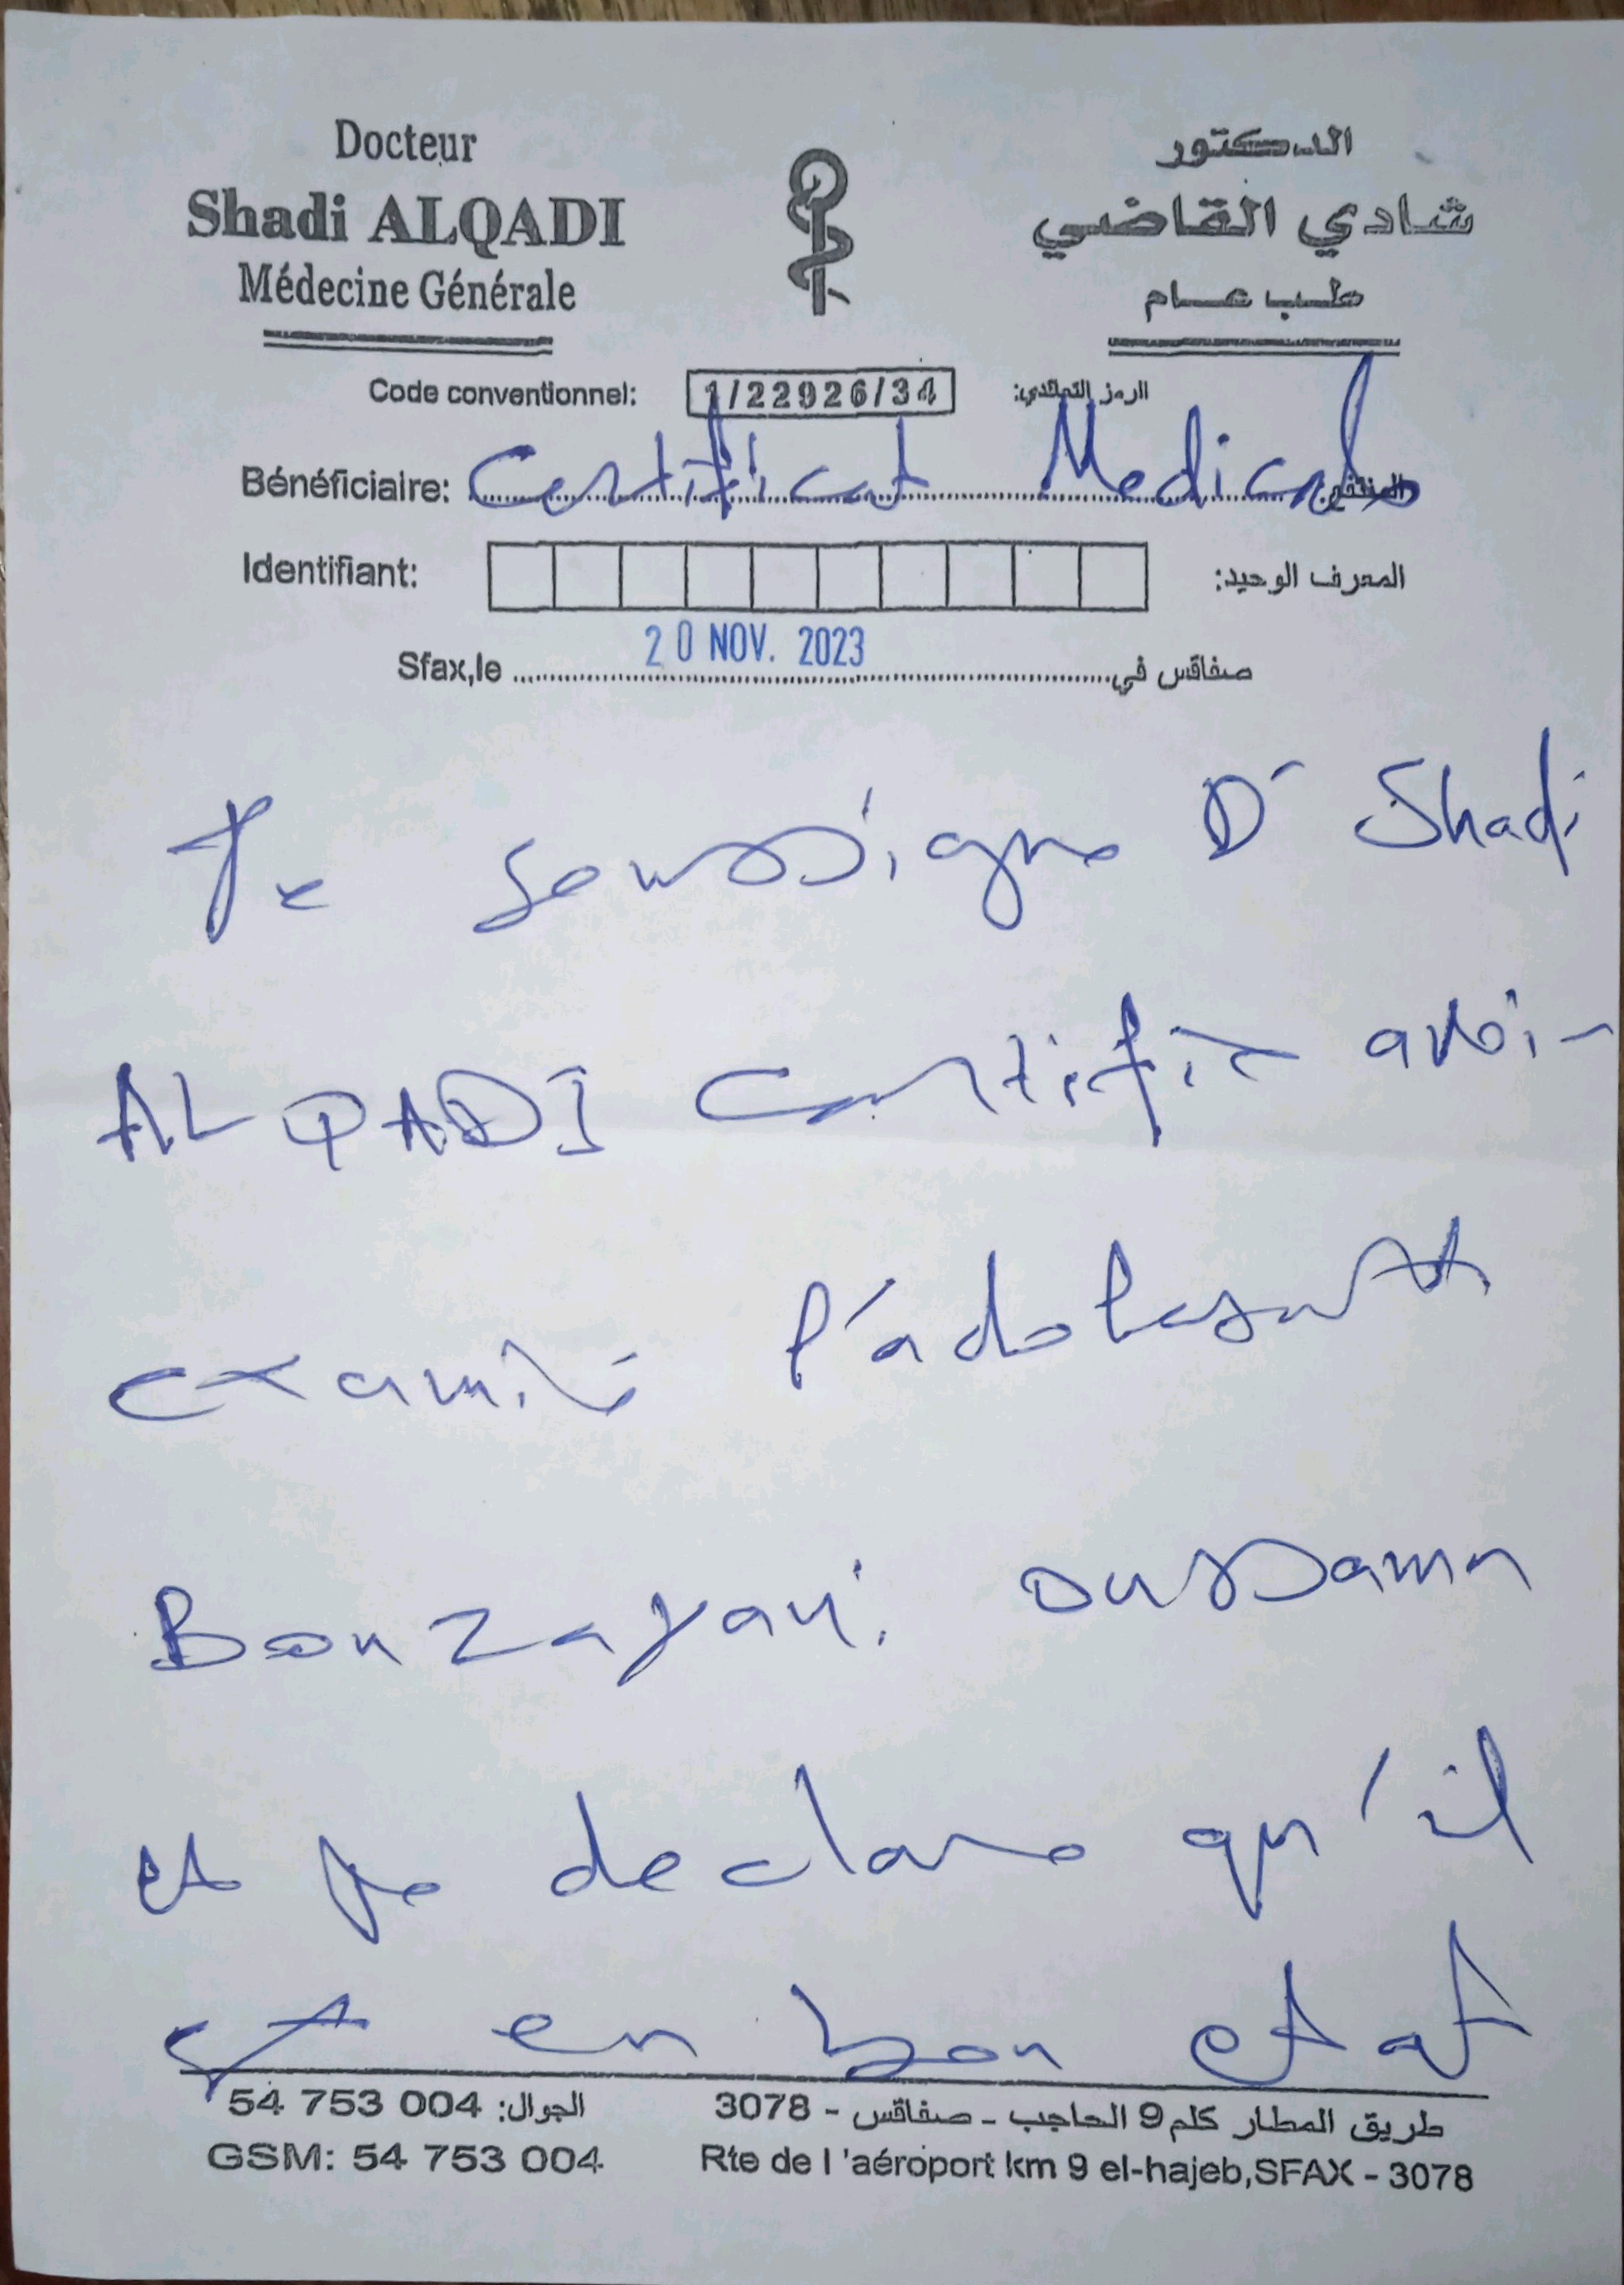 Docteur
Shadi ALQADI
Médecine Générale
الدكتور
شادي القاضي
طب عام
Code conventionnel: 1/22926/34 الرمز التعاقدي:
Bénéficiaire: Certificat Medical المنتفع:
Identifiant: المعرف الوحيد:
Sfax,le 20 NOV. 2023 صفاقس في
Je soussigne Dr Shadi
ALQADI certifie avoir
examiné l'adolescent
Bouzayani oussama
et je declare qu'il
est en bon etat
54 753 004 :الجوال
طريق المطار كلم 9 الحاجب - صفاقس - 3078
GSM: 54 753 004
Rte de l 'aéroport km 9 el-hajeb,SFAX - 3078